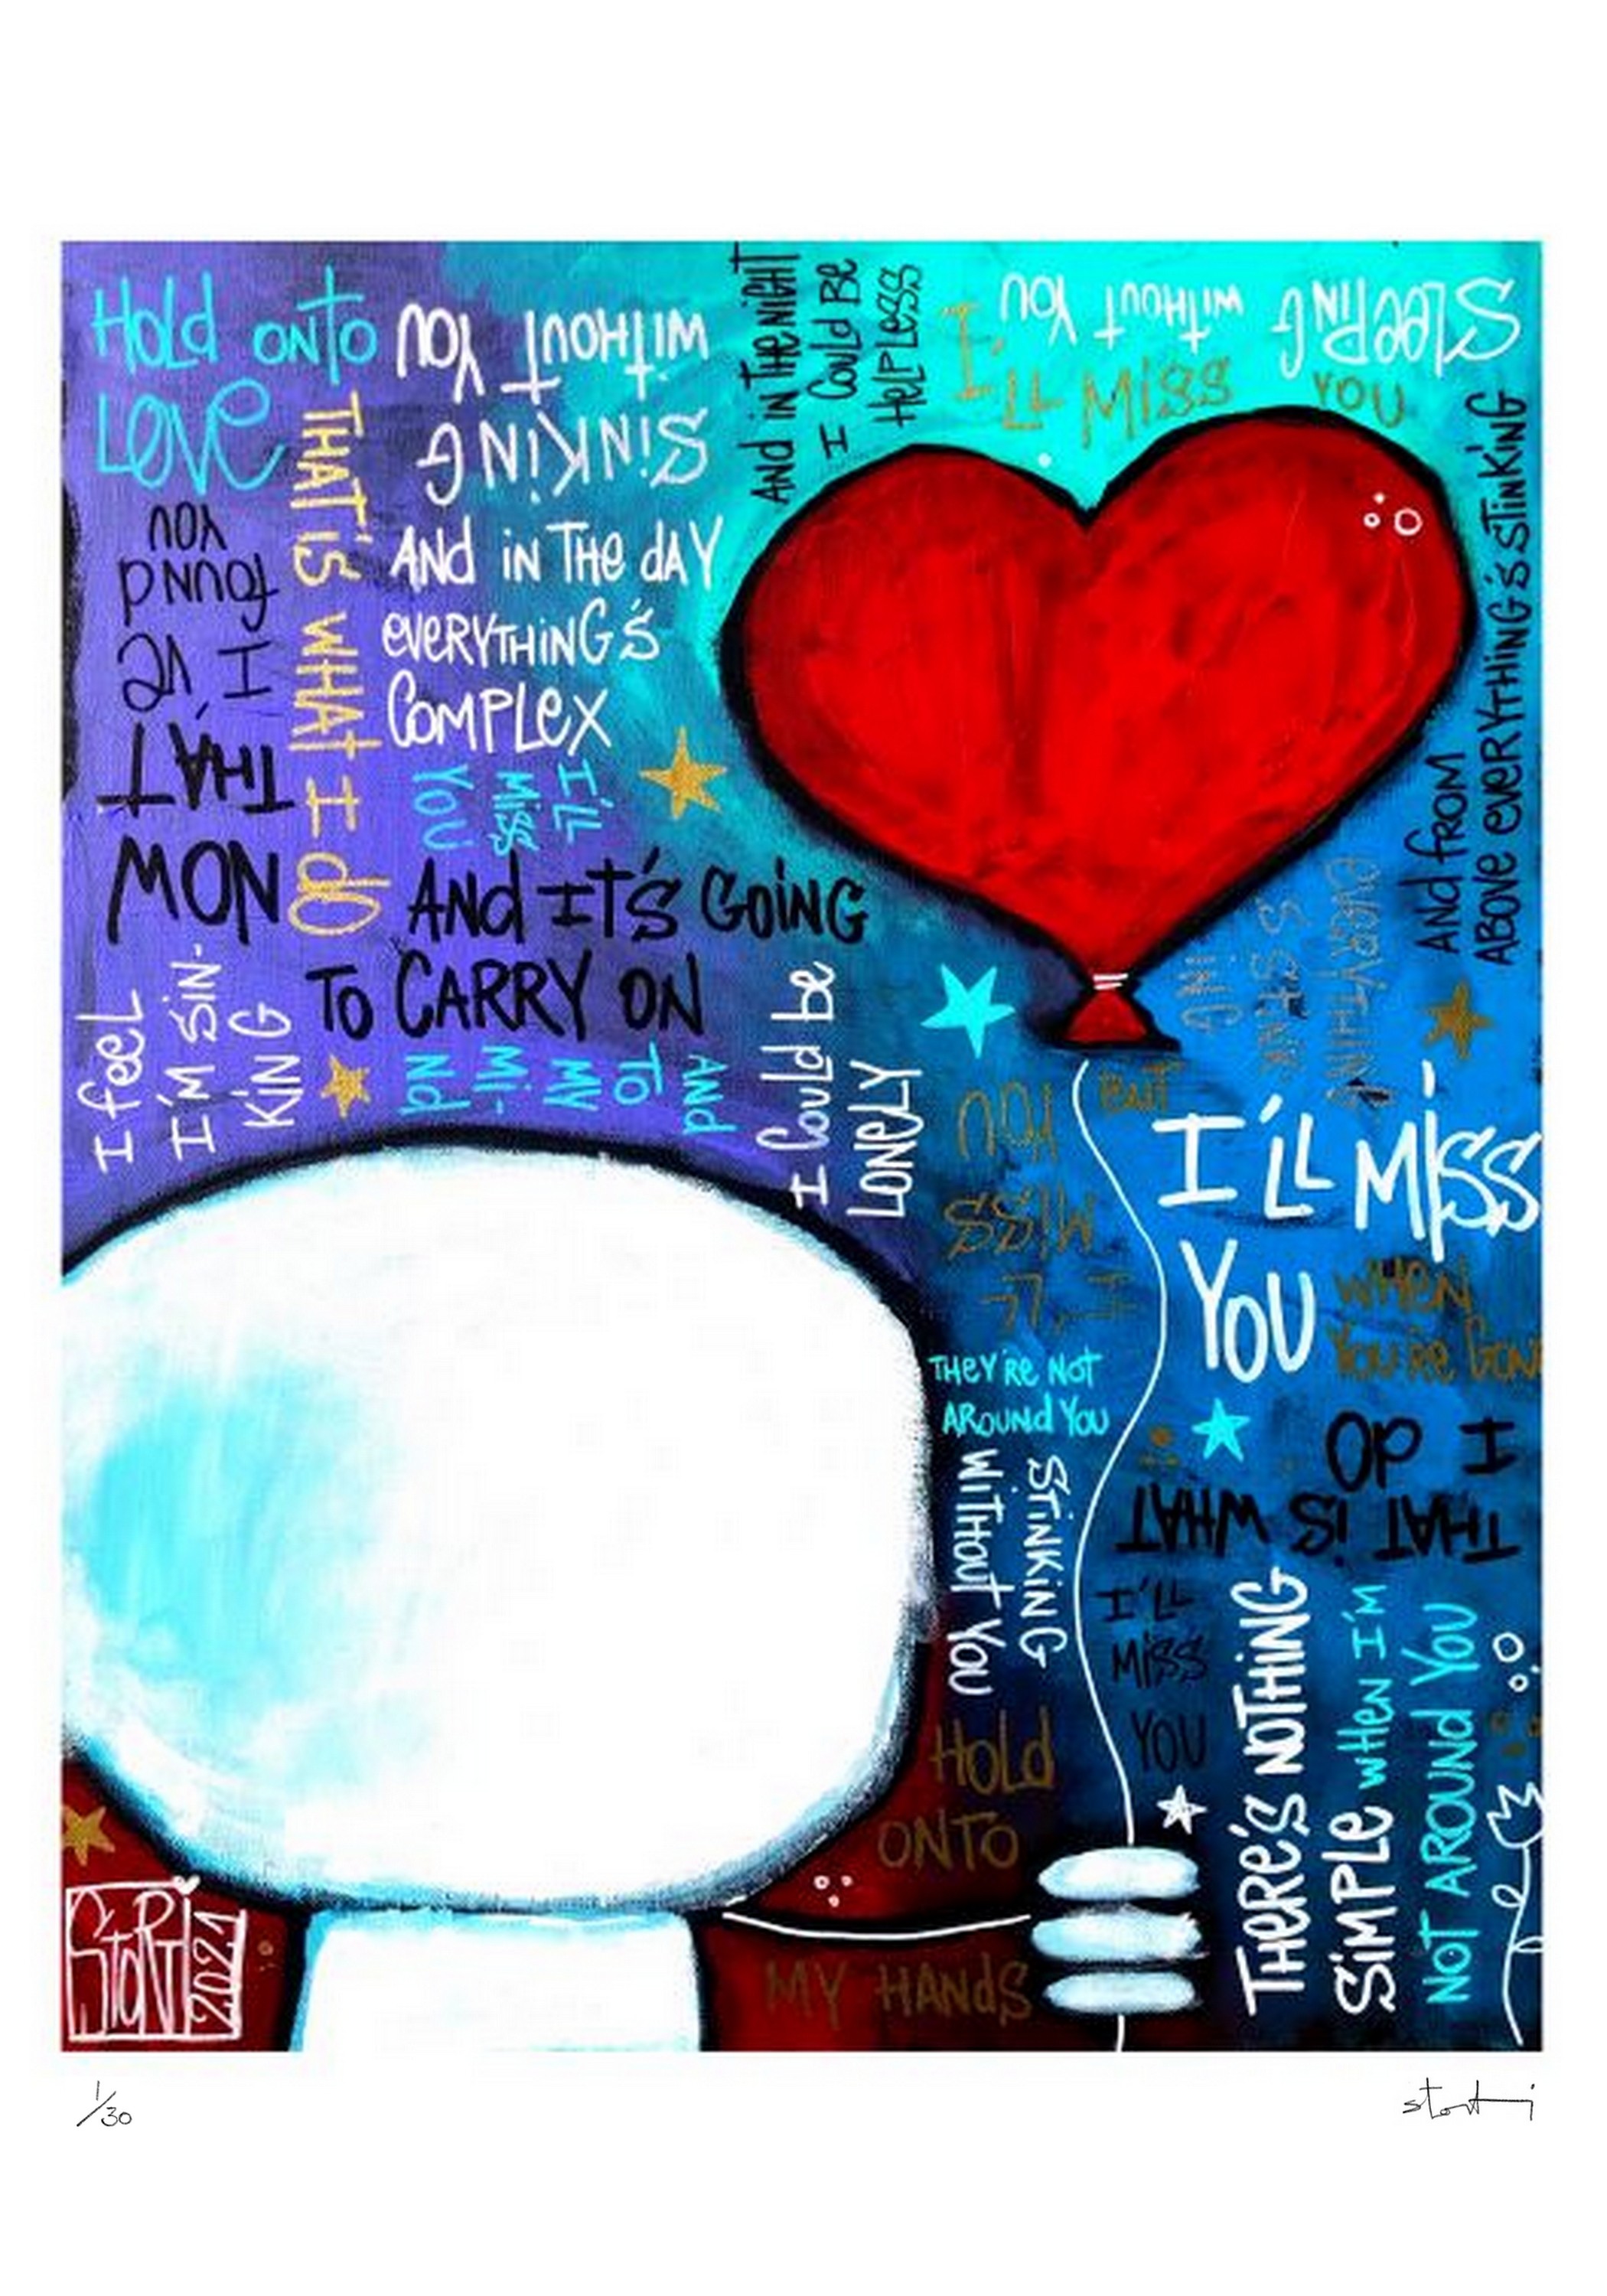 Hold onto
Love
THAT'S WHAT I do
WITHOUT YOU
SINKING
And in THE NIGHT
I Could Be
HelpLess
Sleeping without You
I'LL MISS
YOU
And in THe dAY
everYTHinG's
CompLex
NOW
THAT
I've
found
you
I'LL
MISS
YOU
And IT'S GOING
To CARRY ON
And from
ABOVE everYTHinG's STINKING
I feeL
I'M SIN-
KING
And
TO
MY
Mi-
Nd
I Could be
LoneLY
everYTHING
BUT
I'LL
MISS
YOU
I'LL MISS
YOU
WHeN
YOU're Gone
THeY're NoT
ARound You
STINKING
WITHout You
I do
THAT IS WHAT
I'LL
MISS
YOU
Hold
ONTO
MY HANdS
THere's noTHING
SiMPLe wHen I'M
NOT AROUNd You
StoRTi
2021
1/30
storti